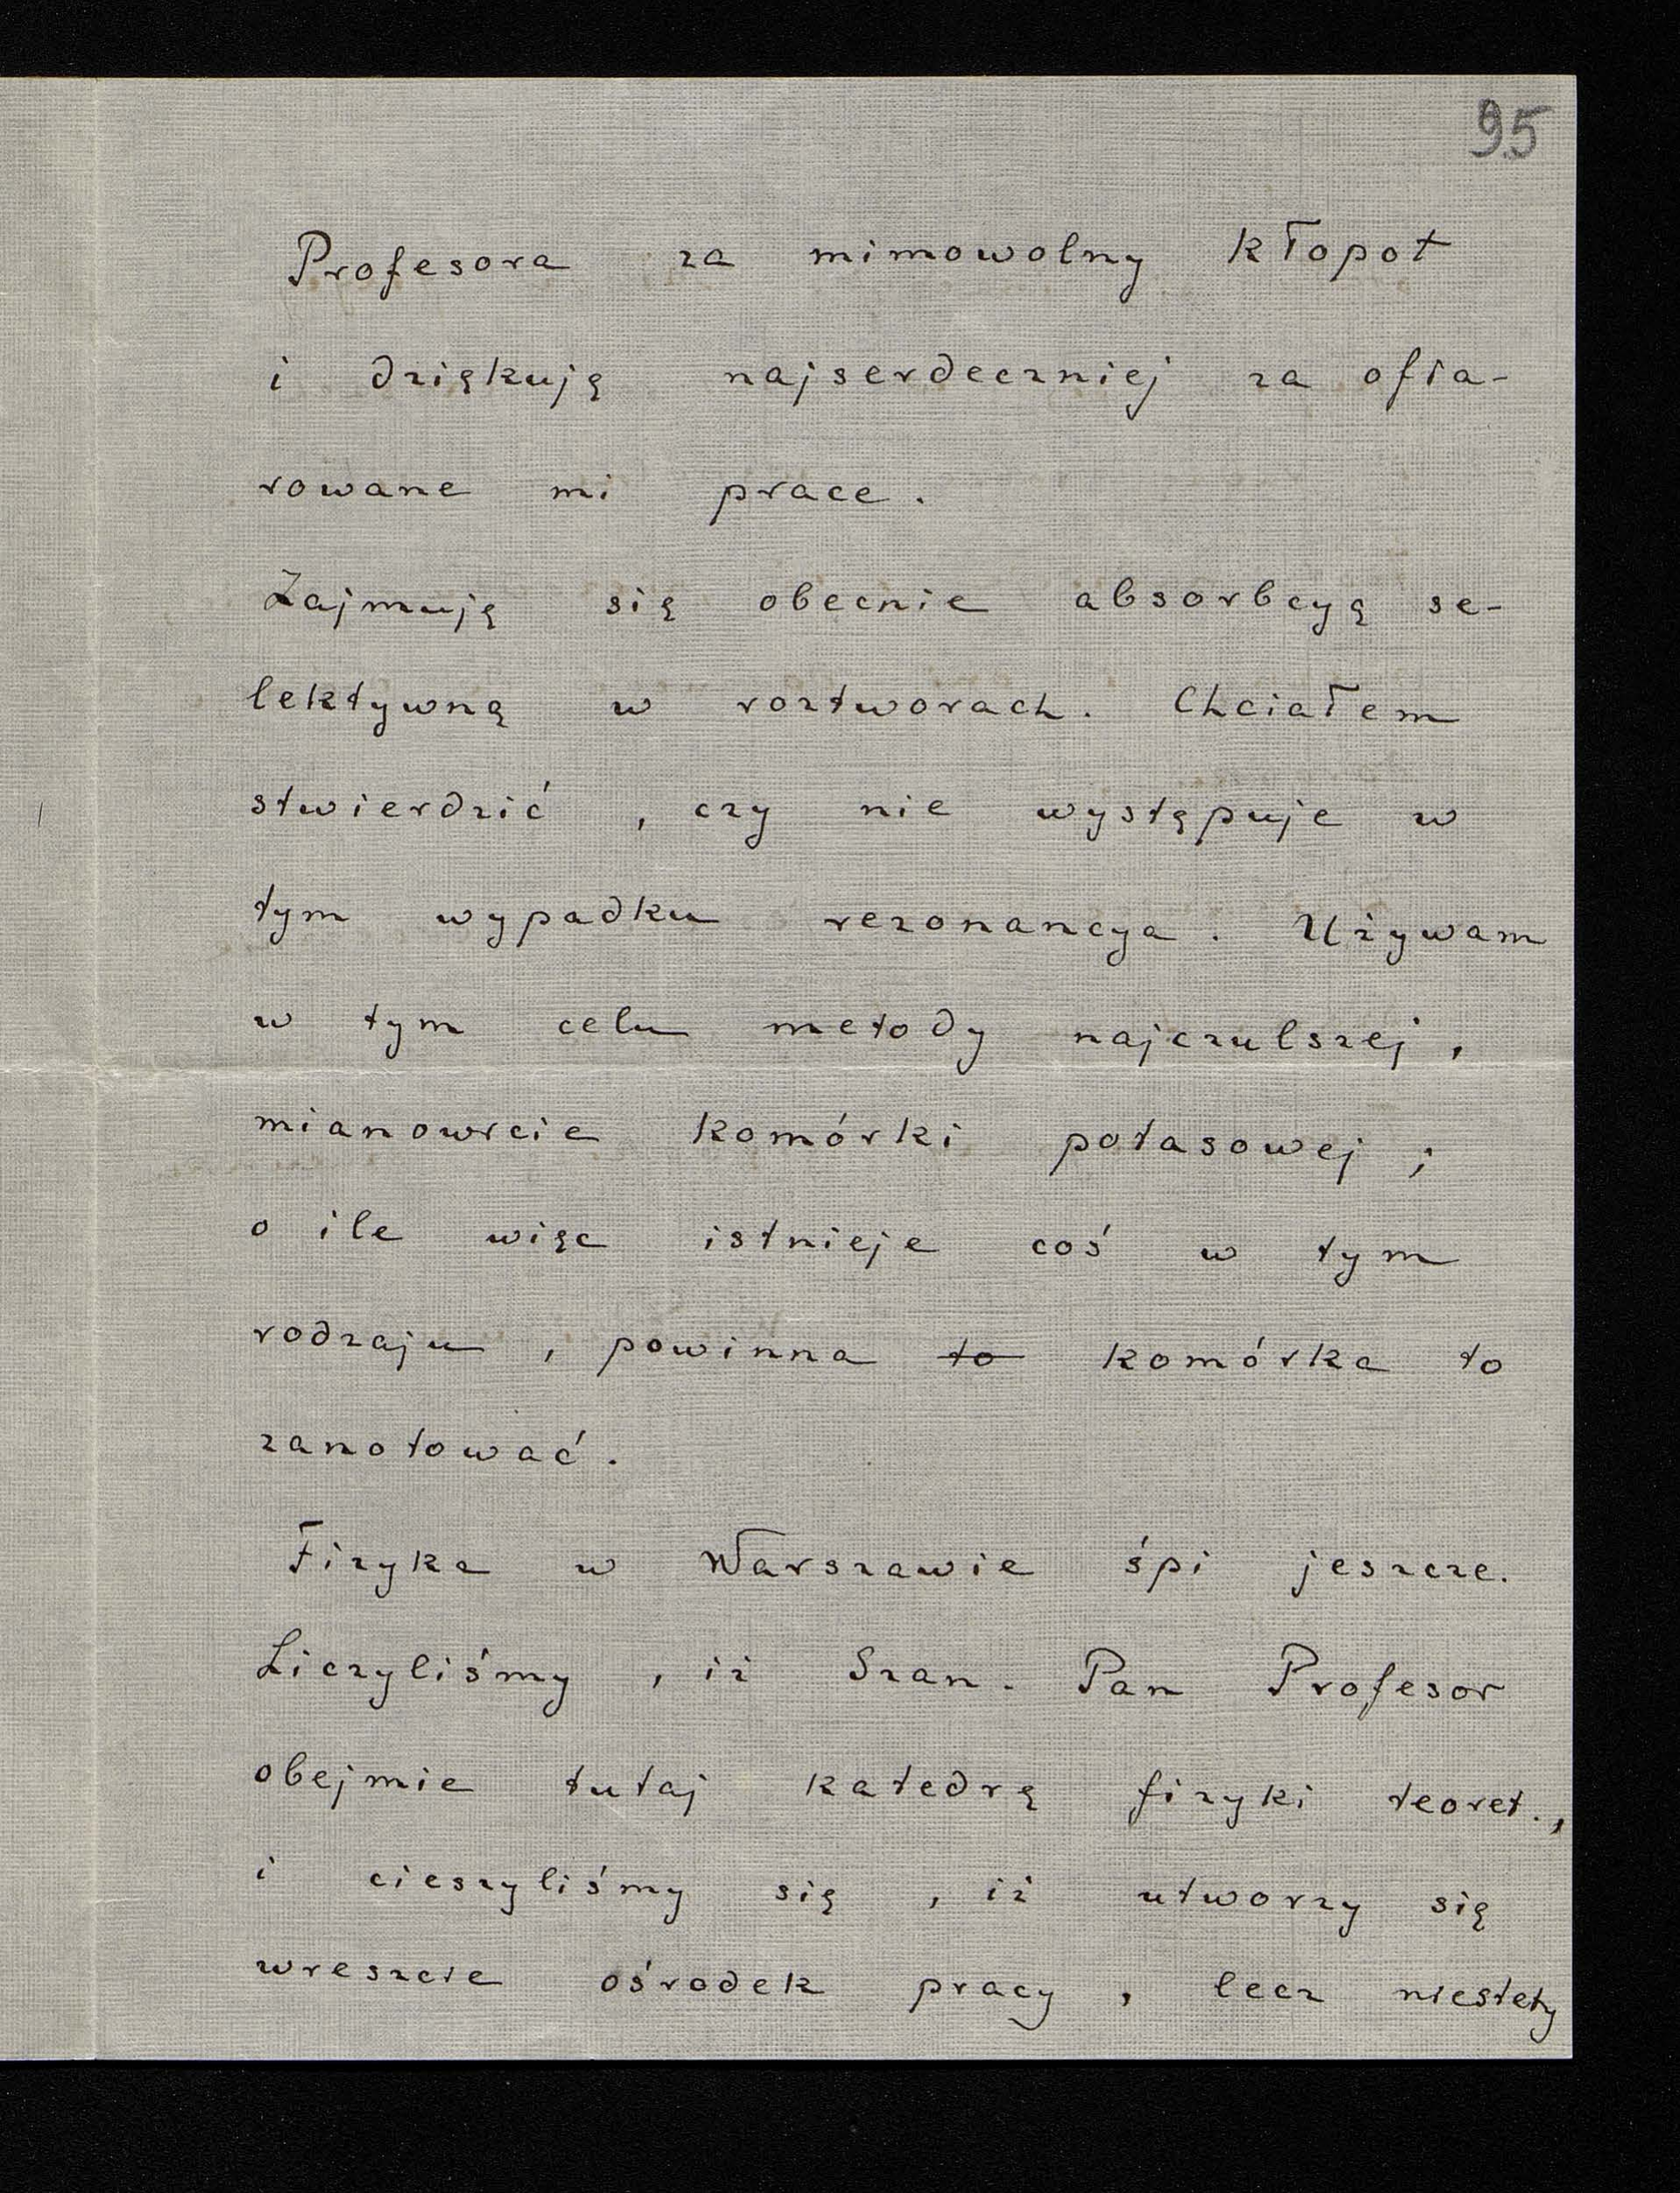 95
Profesora za mimowolny kłopot
i dziękuję najserdeczniej za ofia-
rowane mi prace.
Zajmuję się obecnie absorbcyą se-
lektywną w roztworach. Chciałem
stwierdzić, czy nie występuje w
tym wypadku rezonancya. Używam
w tym celu metody najczulszej,
mianowicie komórki potasowej;
o ile więc istnieje coś w tym
rodzaju, powinna to komórka to
zanotować.
Fizyka w Warszawie śpi jeszcze.
Liczyliśmy, iż Szan. Pan Profesor
obejmie tutaj katedrę fizyki teoret.,
i cieszyliśmy się, iż utworzy się
wreszcie ośrodek pracy, lecz niestety